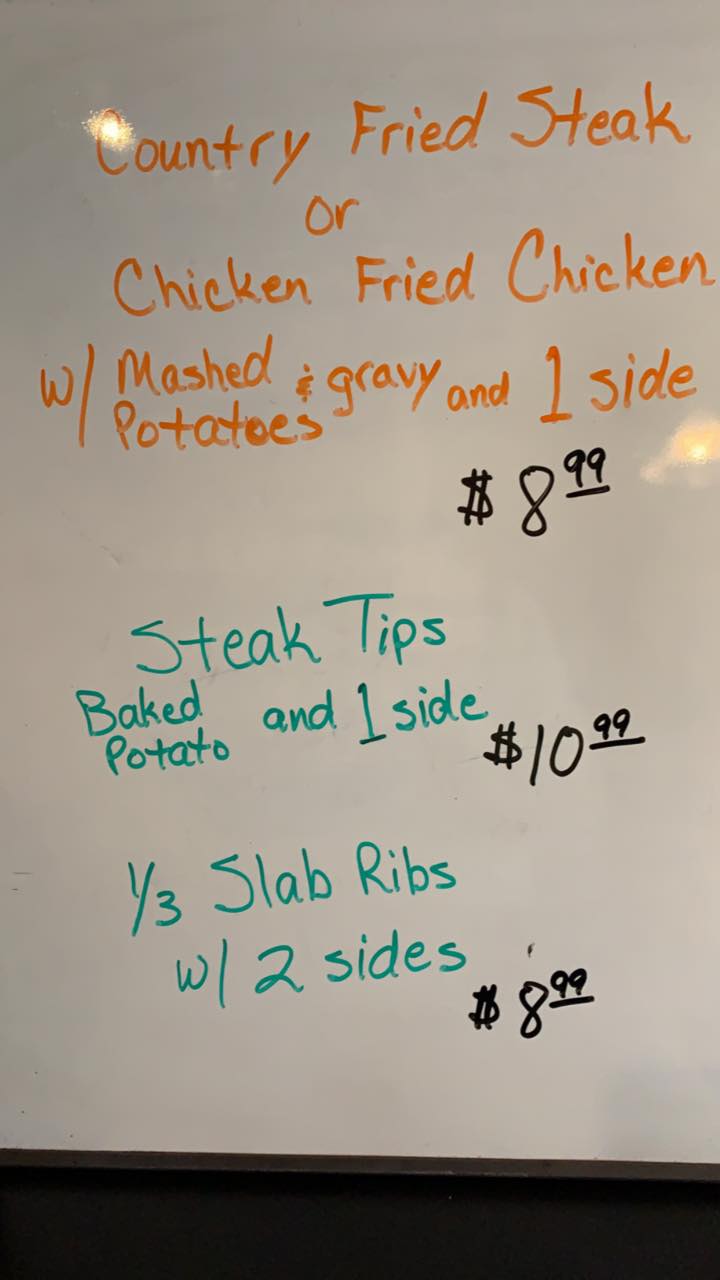 Country Fried Steak
or
Chicken Fried Chicken
w/ Mashed Potatoes & gravy and 1 side
$8.99
Steak Tips
Baked Potato and 1 side
$10.99
1/3 Slab Ribs
w/ 2 sides
$8.99